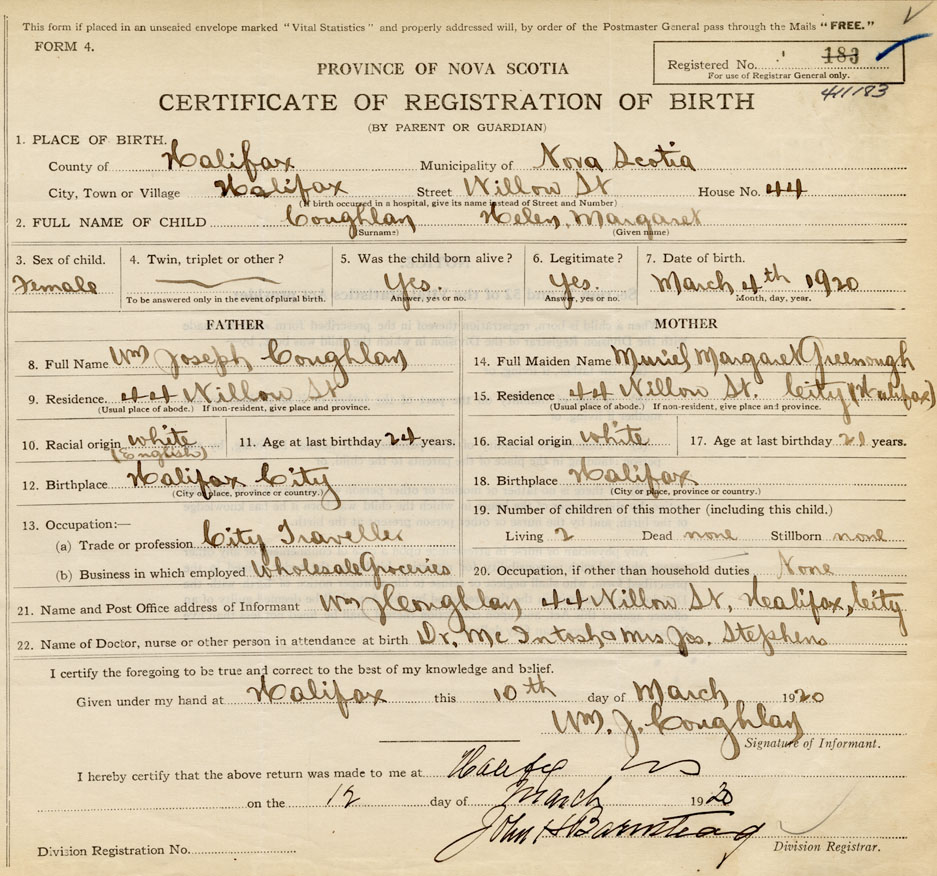 This form if placed in an unsealed envelope marked "Vital Statistics" and properly addressed will, by order of the Postmaster General pass through the Mails "FREE."
FORM 4.
Registered No. 183
For use of Registrar General only.
411183
PROVINCE OF NOVA SCOTIA
CERTIFICATE OF REGISTRATION OF BIRTH
(BY PARENT OR GUARDIAN)
1. PLACE OF BIRTH.
County of Halifax Municipality of Nova Scotia
City, Town or Village Halifax Street Willow St House No. 44
(If birth occurred in a hospital, give its name instead of Street and Number)
2. FULL NAME OF CHILD Coughlan Helen, Margaret
(Surname) (Given name)
3. Sex of child. 4. Twin, triplet or other? 5. Was the child born alive? 6. Legitimate? 7. Date of birth.
Female Yes. Yes. March 4th 1920
To be answered only in the event of plural birth. Answer, yes or no. Answer, yes or no. Month, day, year.
FATHER MOTHER
8. Full Name Wm Joseph Coughlan 14. Full Maiden Name Muriel Margaret Greenough
9. Residence. 44 Willow St 15. Residence 44 Willow St. City (Halifax)
(Usual place of abode.) If non-resident, give place and province. (Usual place of abode.) If non-resident, give place and province.
10. Racial origin white 11. Age at last birthday 24 years. 16. Racial origin white 17. Age at last birthday 21 years.
(English)
12. Birthplace Halifax City 18. Birthplace Halifax
(City or place, province or country.) (City or place, province or country.)
13. Occupation:— 19. Number of children of this mother (including this child.)
(a) Trade or profession City Traveller Living 2 Dead none Stillborn none
(b) Business in which employed Wholesale Groceries 20. Occupation, if other than household duties None
21. Name and Post Office address of Informant Wm J Coughlan 44 Willow St, Halifax, City.
22. Name of Doctor, nurse or other person in attendance at birth Dr. McIntosh & Mrs Jos. Stephens
I certify the foregoing to be true and correct to the best of my knowledge and belief.
Given under my hand at Halifax this 10th day of March 1920
Wm. J. Coughlan
Signature of Informant.
I hereby certify that the above return was made to me at Halifax NS
on the 12 day of March 1920
John H Barnstead
Division Registrar.
Division Registration No.